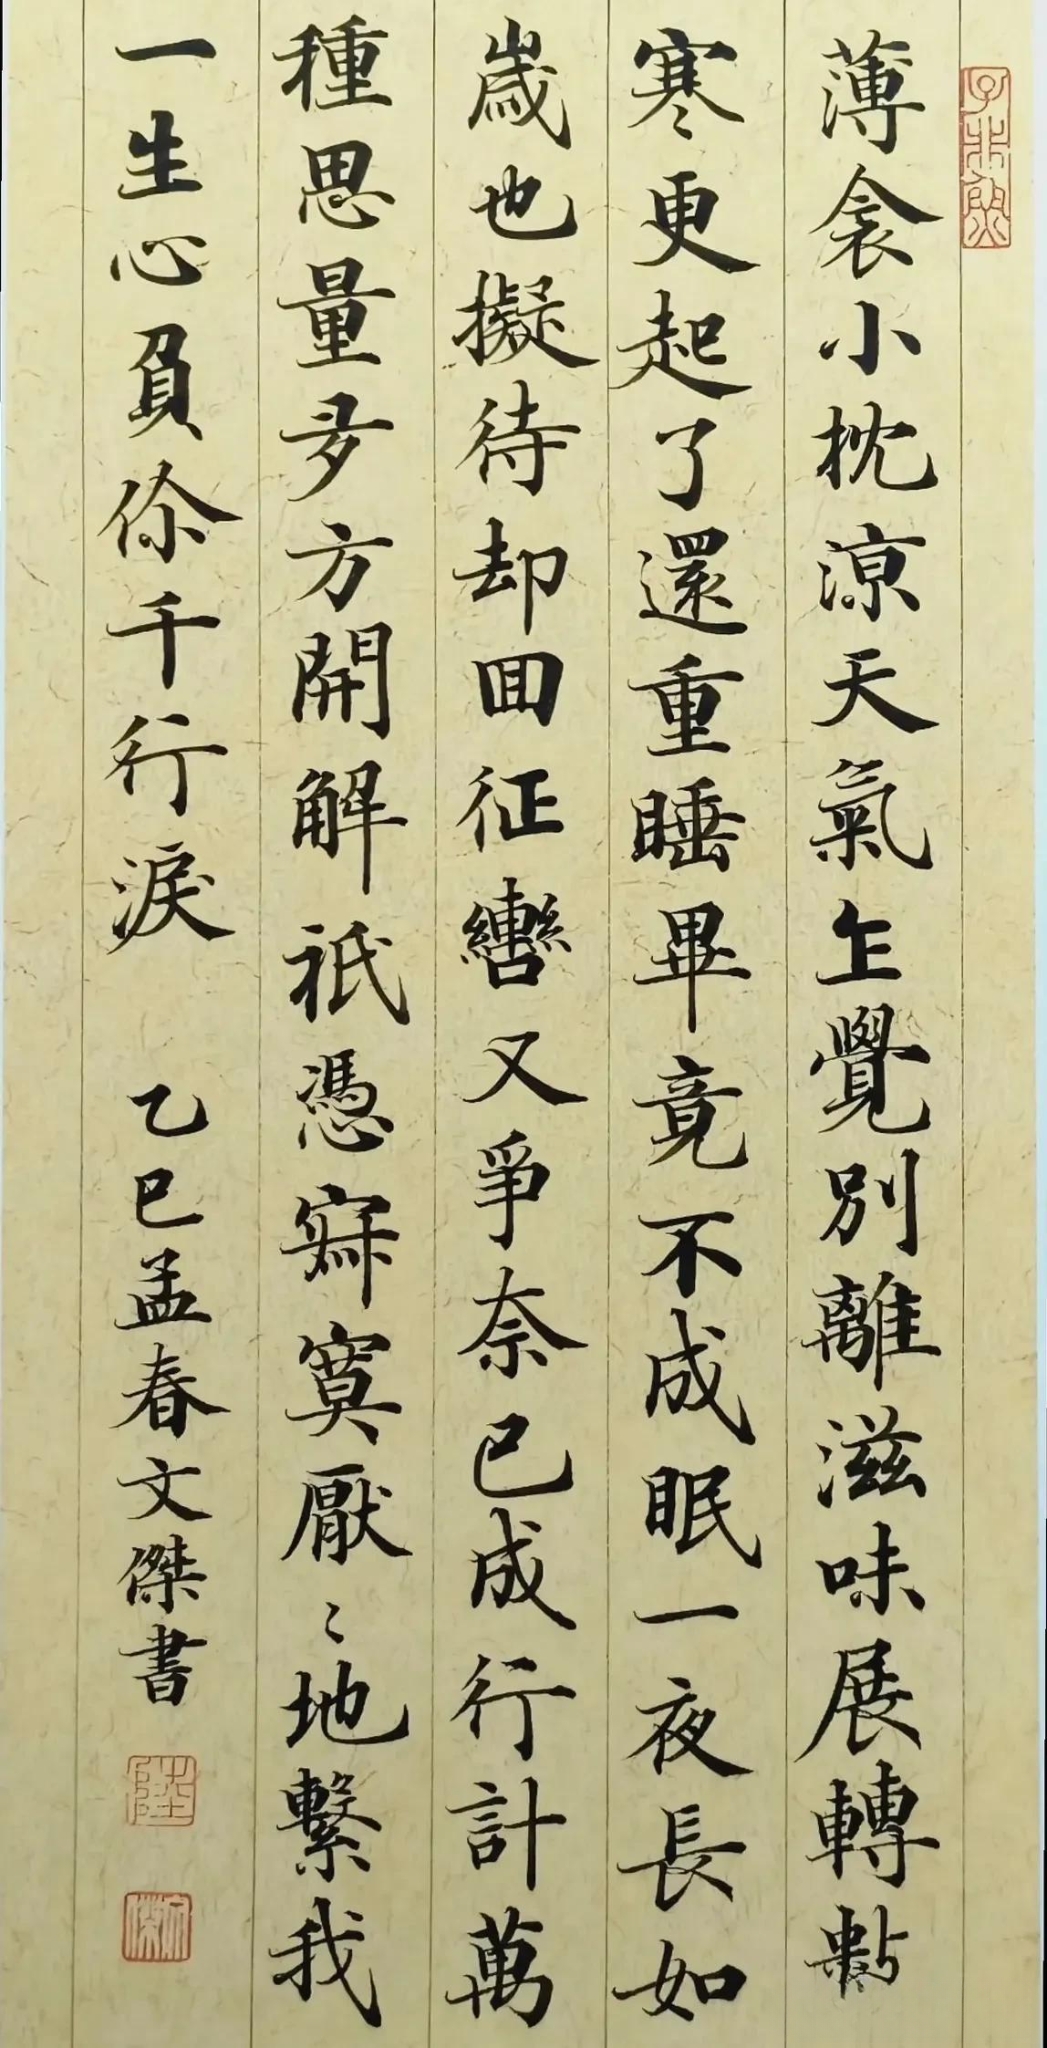 薄衾小枕涼天氣乍覺別離滋味展轉數
寒更起了還重睡畢竟不成眠一夜長如
歲也擬待却回征轡又爭奈已成行計萬
種思量多方開解祇憑寂寞厭〻地繫我
一生心負你千行淚
乙巳孟春文傑書